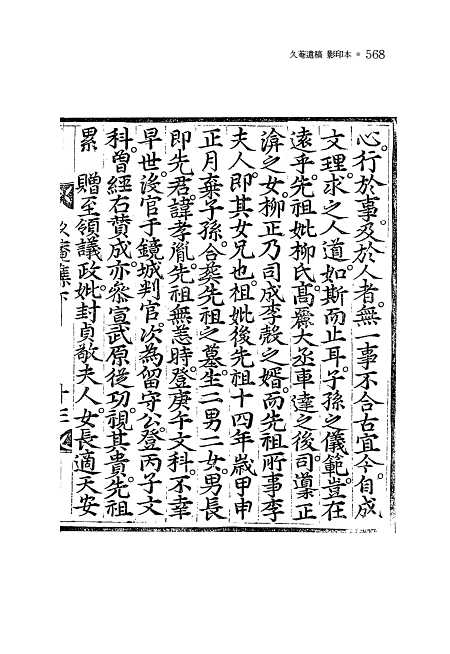 久菴遺稿 影印本 ● 568
心行於事及於人者無一事不合古宜今自成
文理求之人道如斯而止耳子孫之儀範豈在
遠乎先祖妣柳氏高麗大丞車達之後司藁正
渰之女柳正乃司成李㝅之婿而先祖所事李
夫人卽其女兄也祖妣後先祖十四年歲甲申
正月棄子孫合葬先祖之墓生二男二女男長
卽先君諱孝胤先祖無恙時登庚午文科不幸
早世沒官于鏡城判官次為留守公登丙子文
科曾經右賛成亦叅宣武原從功視其貴先祖
累 贈至領議政妣封貞敬夫人女長適天安
久菴集下 十三